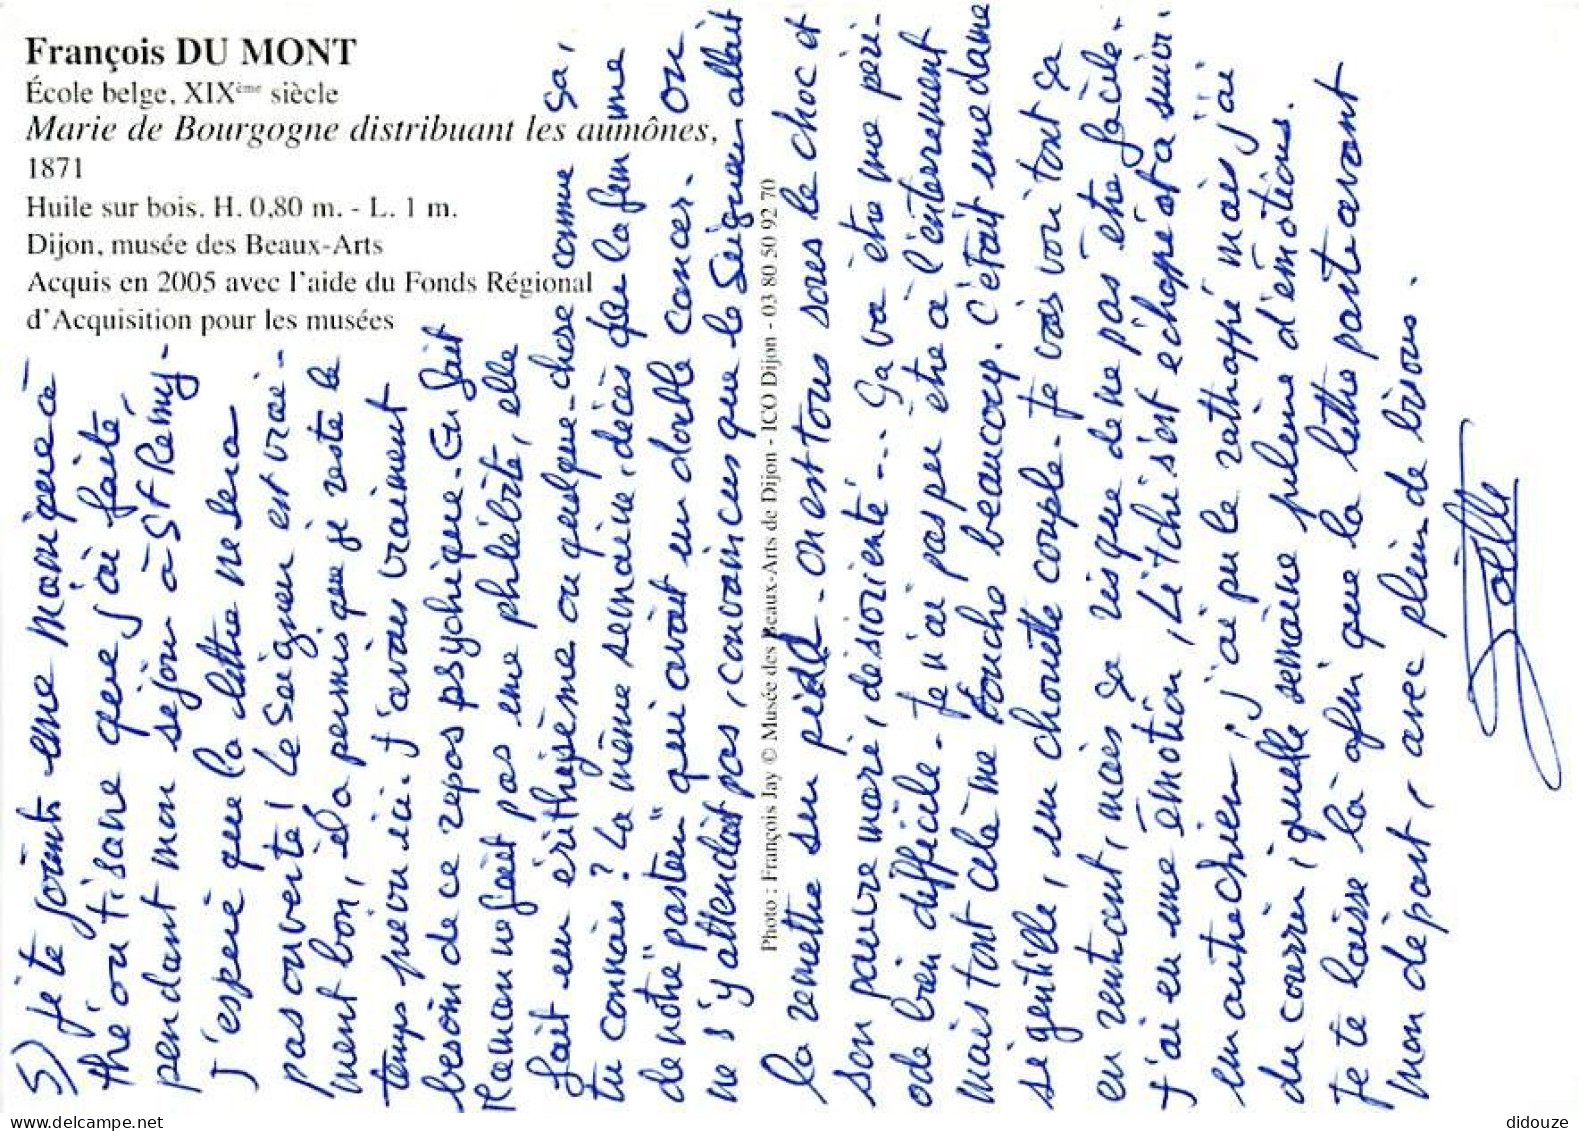 François DU MONT
École belge, XIXème siècle
Marie de Bourgogne distribuant les aumônes,
1871
Huile sur bois. H. 0,80 m. - L. 1 m.
Dijon, musée des Beaux-Arts
Acquis en 2005 avec l'aide du Fonds Régional
d'Acquisition pour les musées
Photo : François Jay © Musée des Beaux-Arts de Dijon - ICO Dijon - 03 80 50 92 70
5) Je te joints une marque à
thé ou tisane que j'ai faite,
pendant mon séjour à St Remy-
J'espère que la lettre ne sera
pas ouverte ! Le Seigneur est vrai-
ment bon, il a permis que je reste le
temps prévu ici. J'avais vraiment
besoin de ce repos psychique. En fait
Maman ne fait pas une phlébite, elle
fait un érithysème ou quelque-chose comme ça,
tu connais ? La même semaine, décès de la femme
de notre "pasteur" qui avait un double cancer. On
ne s'y attendait pas, convaincus que le Seigneur allait
la remettre sur pied. On est tous sous le choc et
son pauvre mari, désorienté... ça va être une péri-
ode bien difficile. Je n'ai pas pu être à l'enterrement
mais tout cela me touche beaucoup. C'était une dame
si gentille, un chouette couple. Je vais voir tout ça
en rentrant, mais ça risque de ne pas être facile.
J'ai eu une émotion, Litchi s'est échappé et a suivi
un autre chien, j'ai pu le rattrapé mais j'ai
du courrir, quelle semaine pleine d'émotions.
Je te laisse là afin que la lettre parte avant
mon départ, avec plein de bisous.
didouze